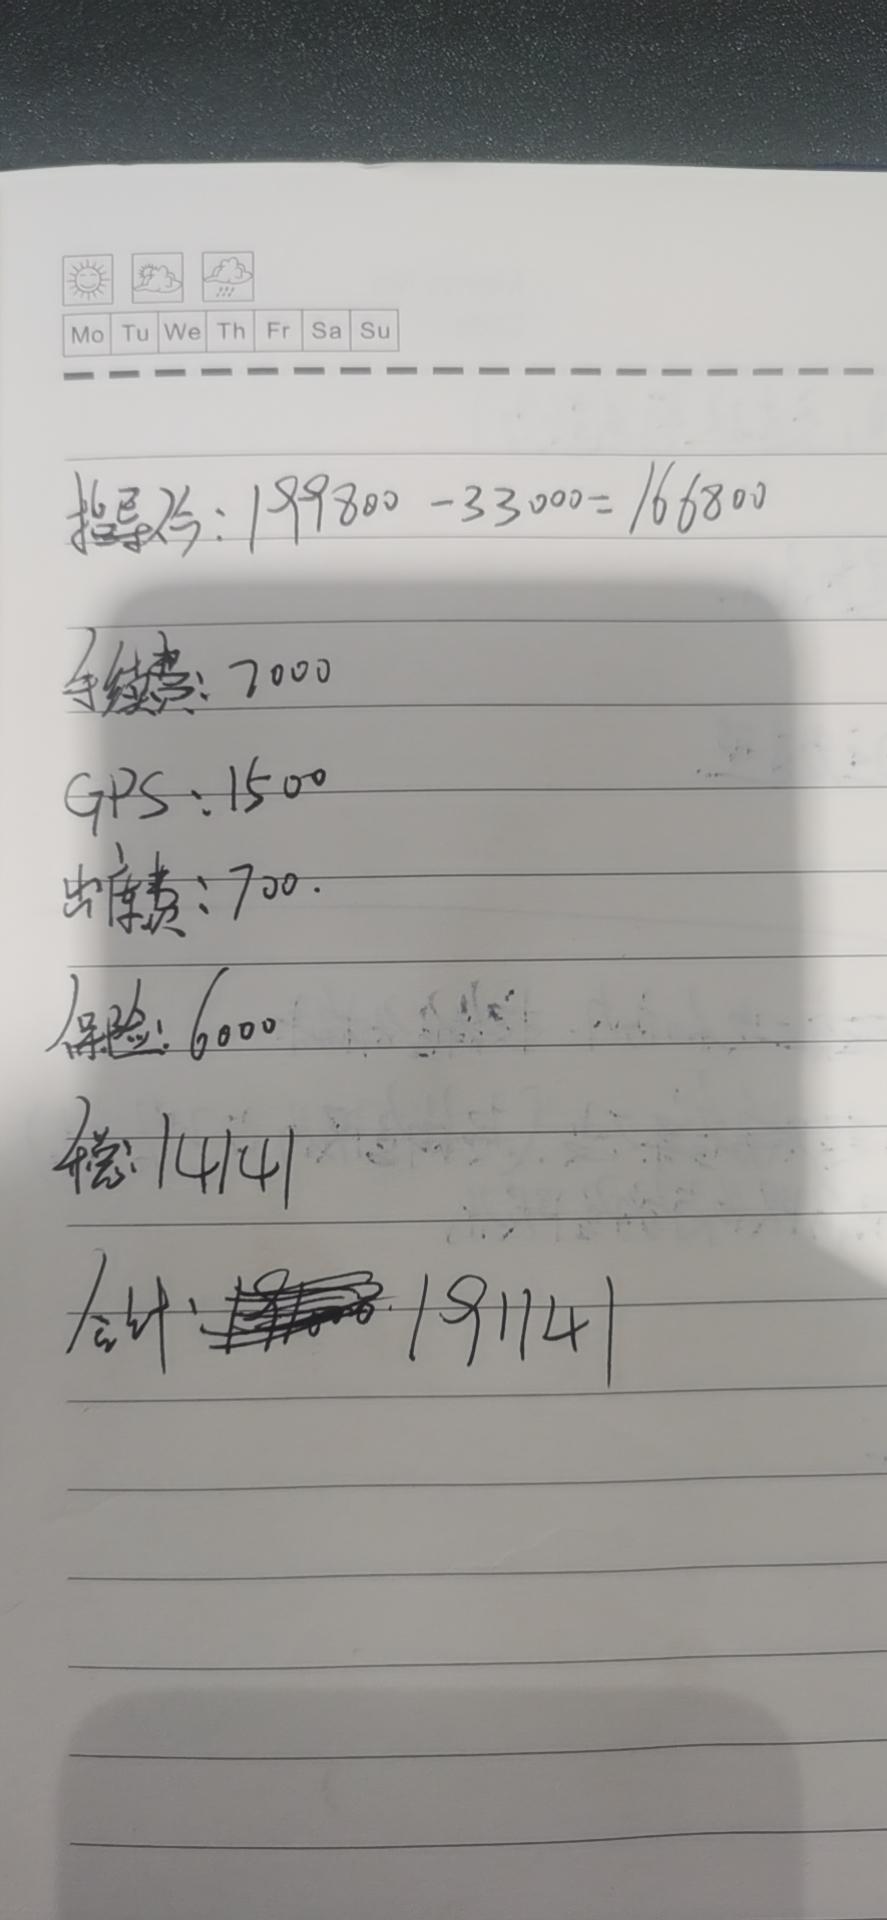 Mo Tu We Th Fr Sa Su
指导价:199800-33000=166800
手续费:7000
GPS:1500
出库费:700.
保险:6000
税:14141
合计:191141